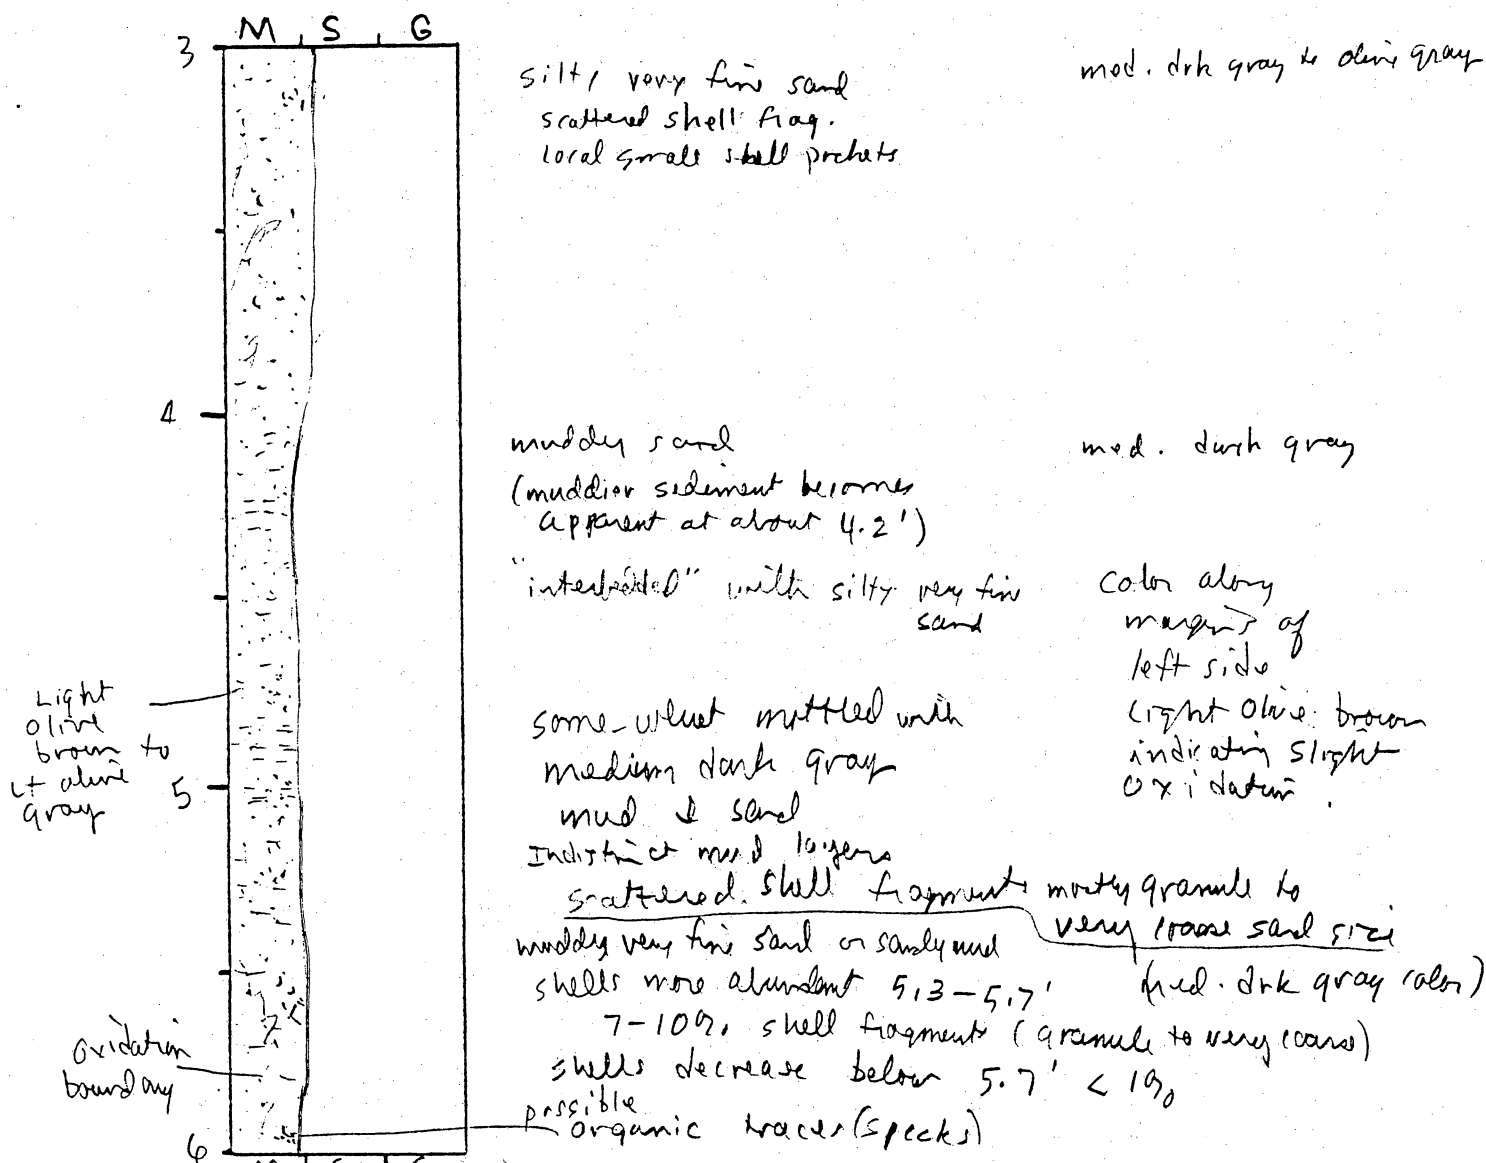 M S G
3
silty very fine sand
scattered shell frag.
local small shell pockets
med. drk gray to olive gray
4
muddy sand
(muddier sediment becomes
apparent at about 4.2')
med. dark gray
"interbedded" with silty very fine
sand
Color along
margins of
left side
light olive brown
indicating slight
oxidation.
Light
olive
brown to
lt olive
gray
some-what mottled with
medium dark gray
mud & sand
5
Indistinct mud layers
scattered shell fragments mostly granule to
very coarse sand size
muddy very fine sand or sandy mud
shells more abundant 5.3-5.7' (med. drk gray color)
7-10% shell fragments (granule to very coarse)
shells decrease below 5.7' < 1%
oxidation
boundary
possible
organic traces (specks)
6
M S G